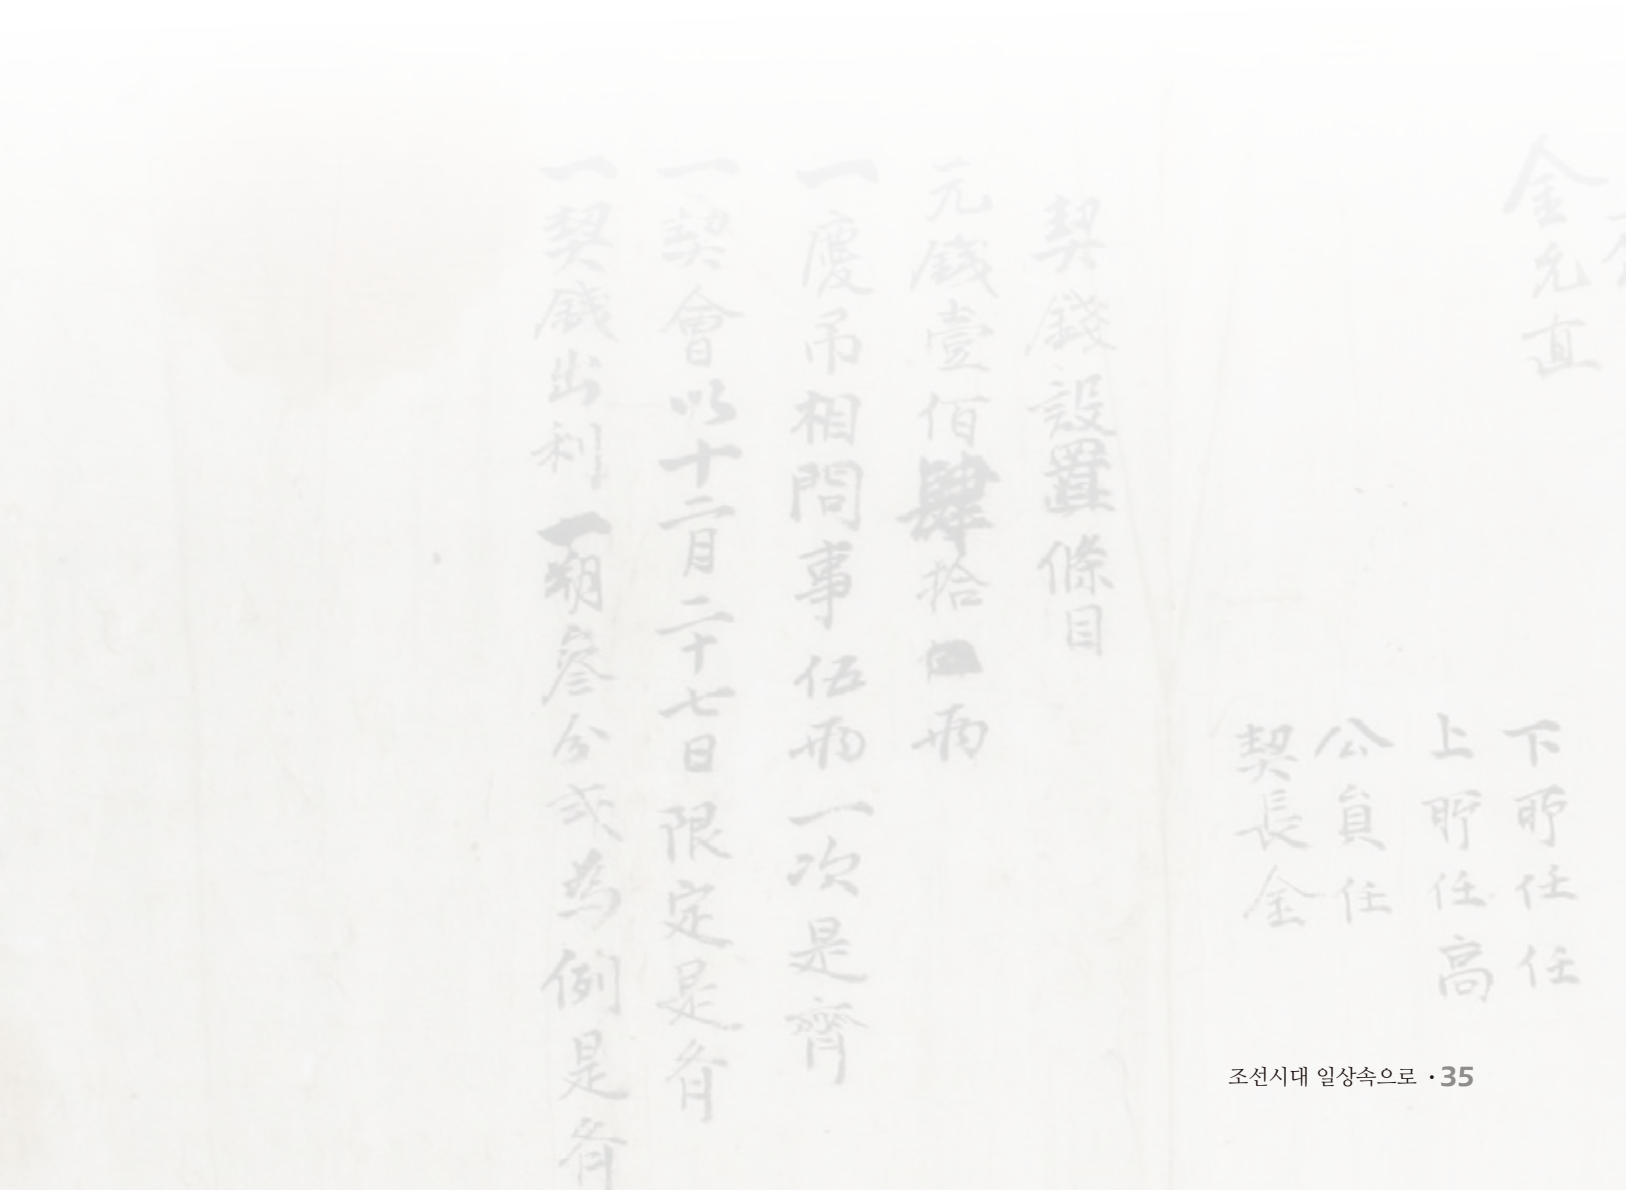 金允直
下
任
任
上
任
高
公員任
契長金
契錢設置條目
元錢壹佰肆拾
兩
一慶吊相問事伍兩一次是齊
一契會以十二月二十七日限定是齊
一契錢出利一朔參分式為例是齊
조선시대 일상속으로 · 35